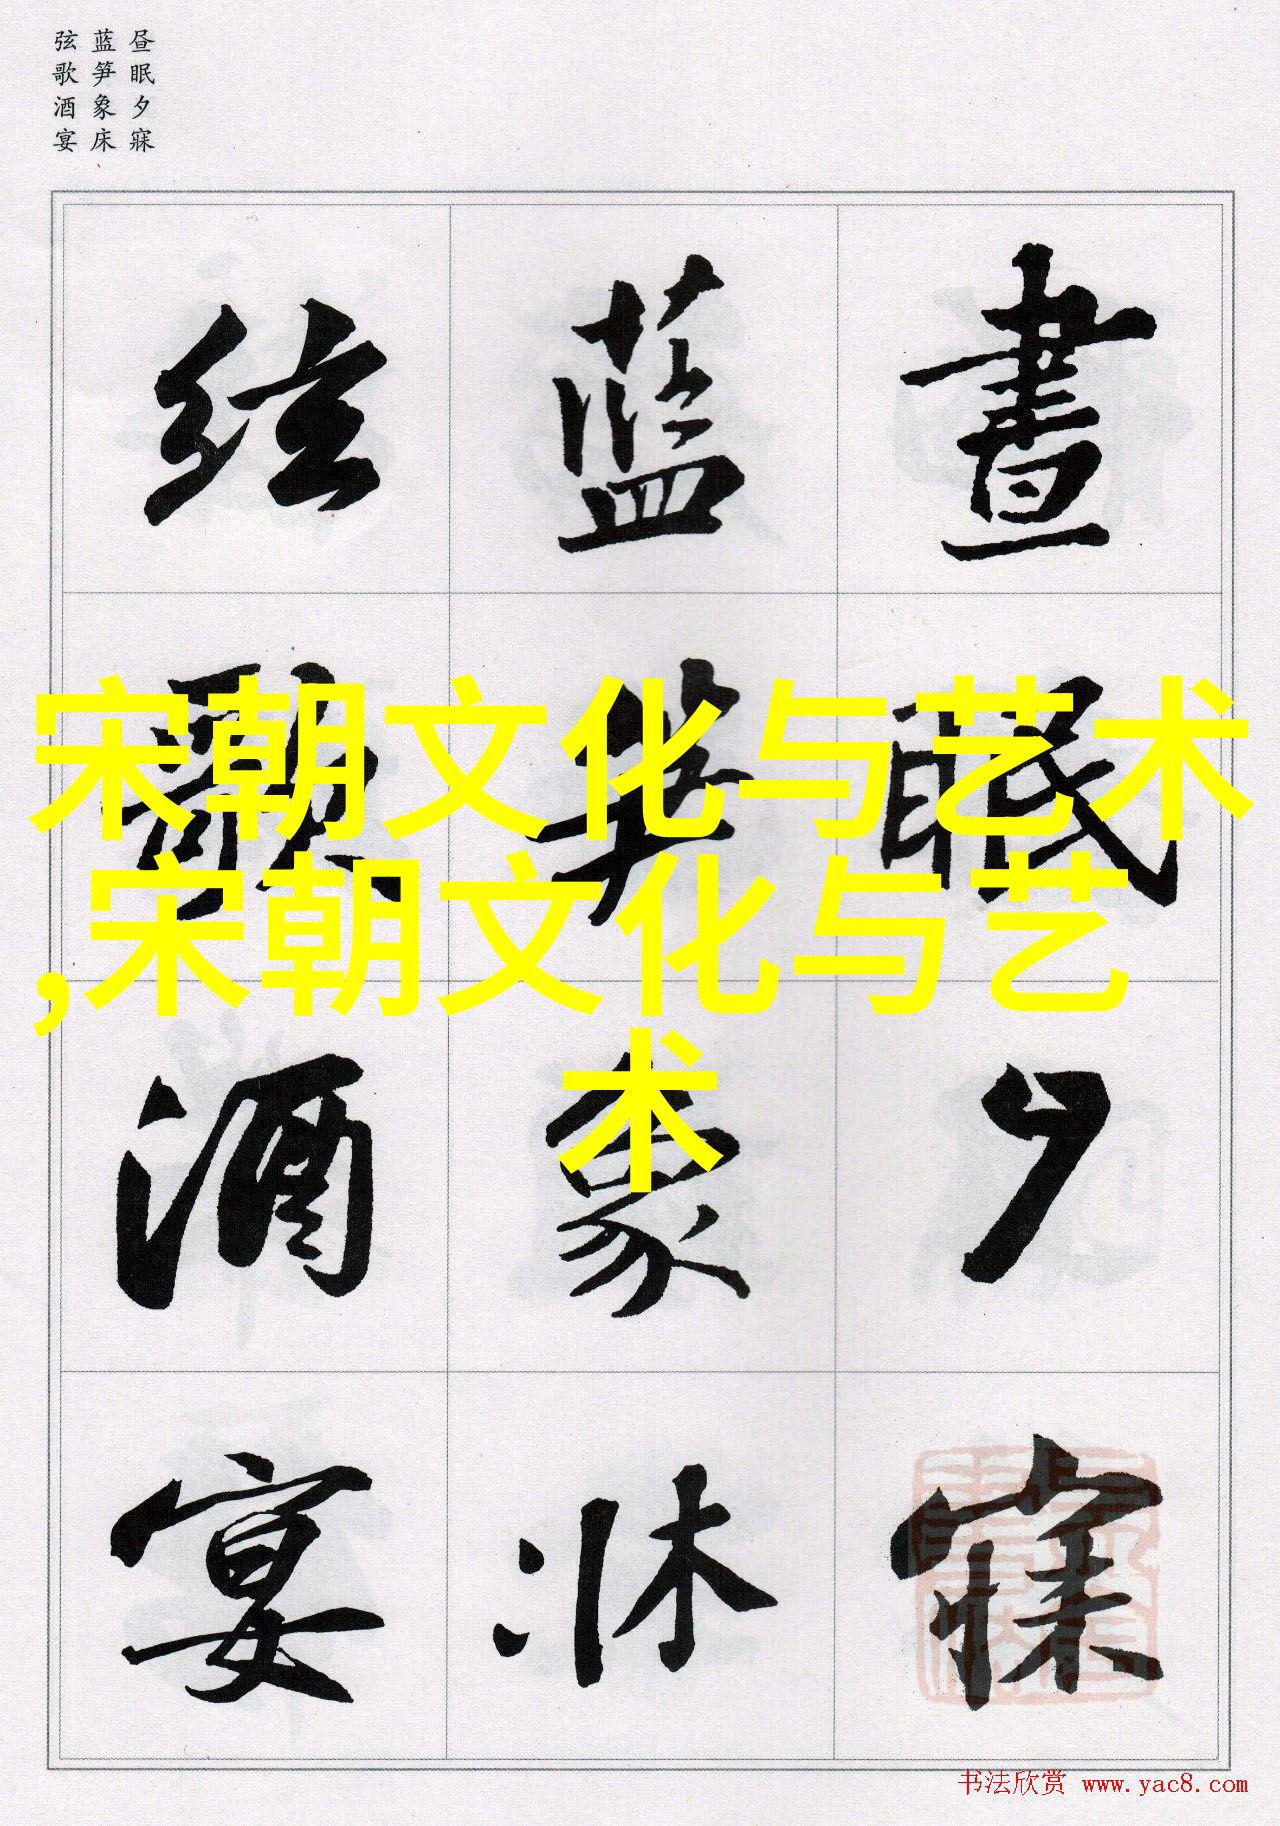 昼眠夕寐
蓝笋象床
弦歌酒宴
晝眠夕寐
蓝笋象牀
弦歌酒宴
宋朝文化与艺术
,宋朝文化与艺
术
书法欣赏 www.yac8.com